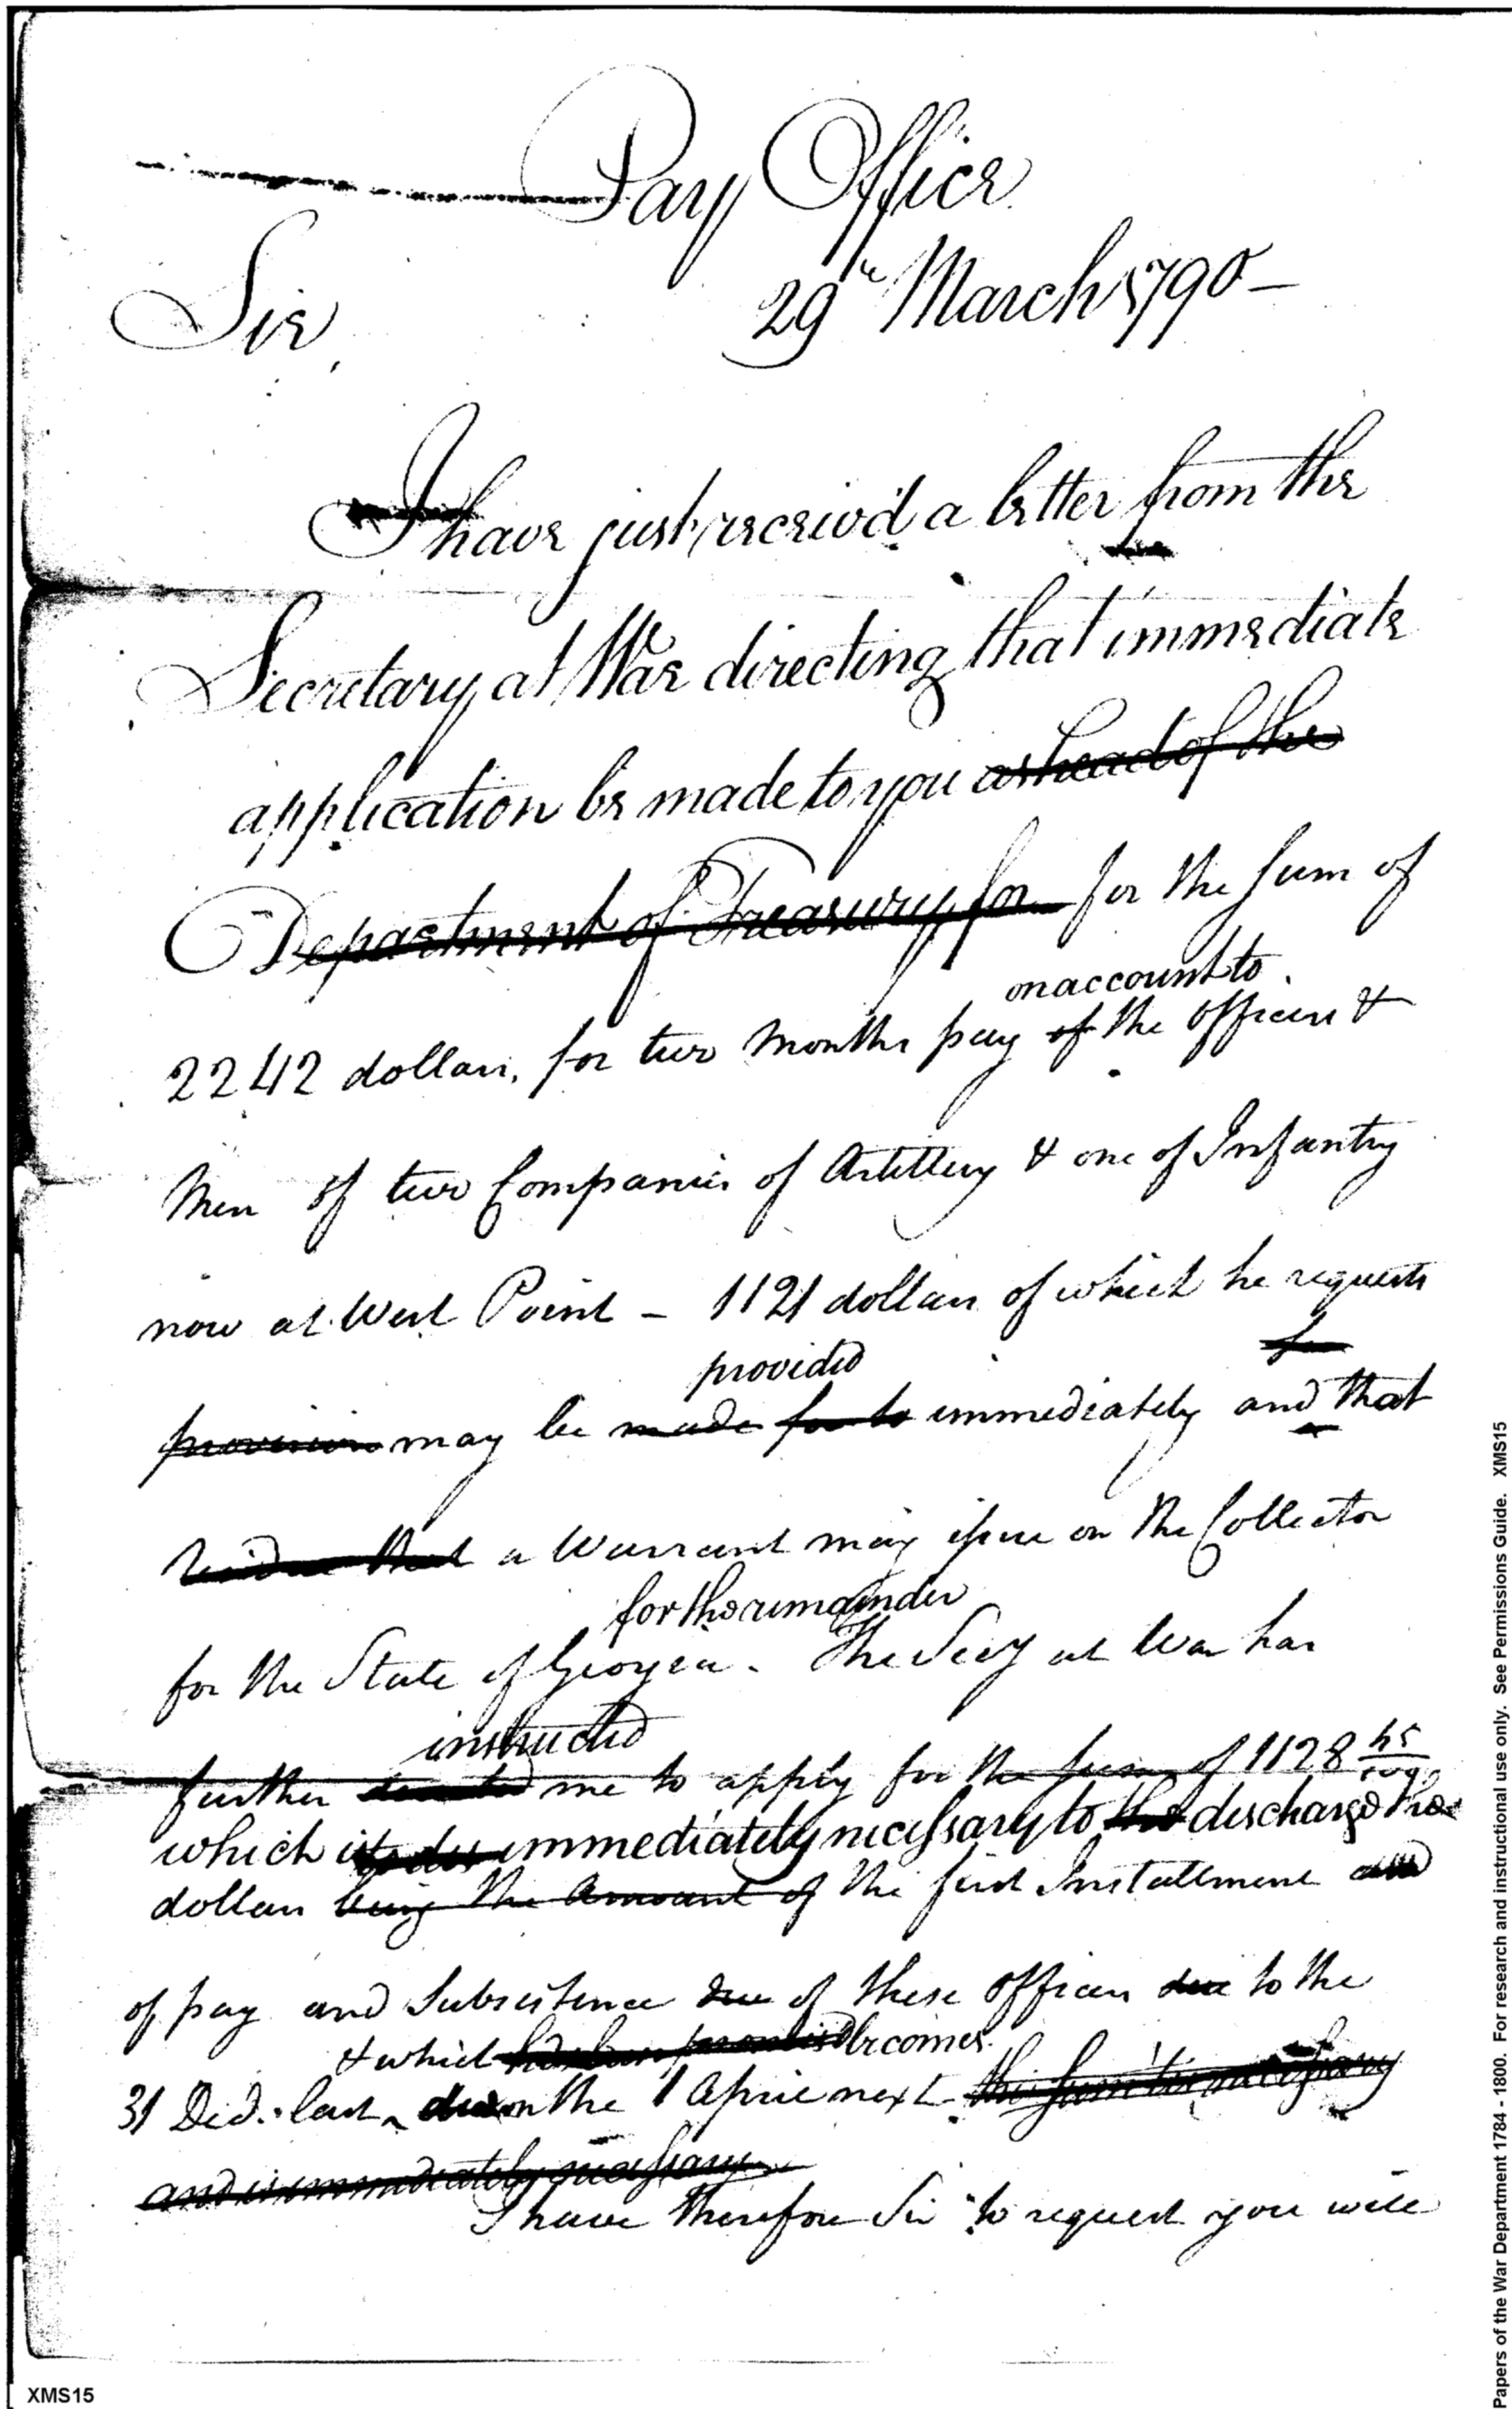 Pay Office
29th March 1790 —
Sir,
I have just receiv'd a letter from the
Secretary at War directing that immediate
application be made to you as head of the
Department of Treasury for for the sum of
on account to
2242 dollars, for two Months pay of the officers &
Men of two Companies of Artillery & one of Infantry
now at West Point — 1121 dollars of which he requests
provided
provision may be made for to immediately and that
that a Warrant may issue on the Collector
for the remainder
for the State of Georgia. The Secy at War has
instructed
further directed me to apply for the sum of 1128
which is immediately necessary to the discharge
dollars being the Amount of the first Installment
of pay and Subsistence due of these officers due to the
& which has been promised becomes
31 Decr. last due on the 1 April next this sum is necessary
and is immediately necessary
I have therefore Sir to request you will
XMS15
Papers of the War Department 1784 - 1800. For research and instructional use only. See Permissions Guide. XMS15